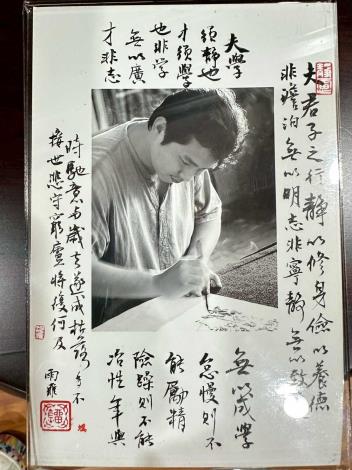 夫君子之行靜以修身儉以養德
非澹泊無以明志非寧靜無以致
夫學
須靜也
才須學
也非學
無以廣
才非志
無以成學
怠慢則不
能勵精
險躁則不能
冶性年與
時馳意与歲去遂成枯落多不
接世悲守窮廬將復何及